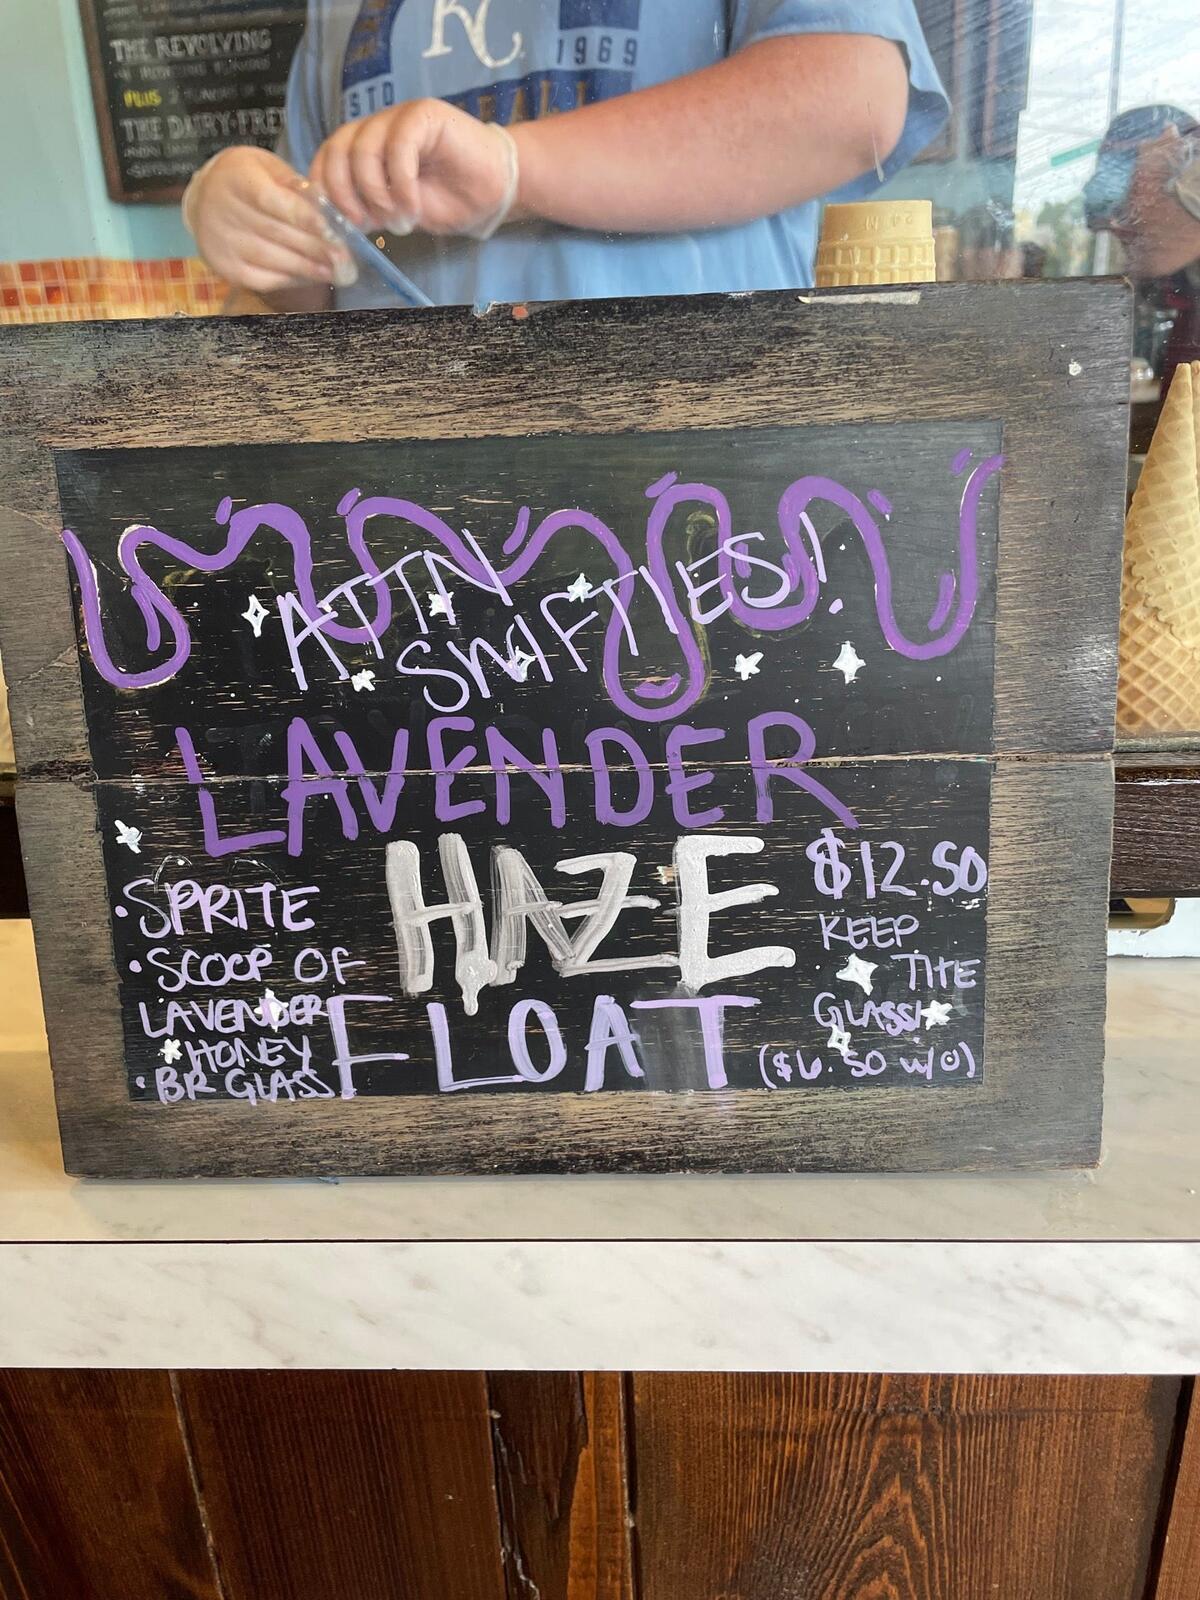 THE REVOLVING
PLUS 2 FLAVORS OF
THE DAIRY-FREE
KC
1969
ESTD
ATTN
SWIFTIES!
LAVENDER
HAZE
FLOAT
• SPRITE
• SCOOP OF
LAVENDER
HONEY
• BR GLASS
$12.50
KEEP
THE
GLASS!
($6.50 w/o)